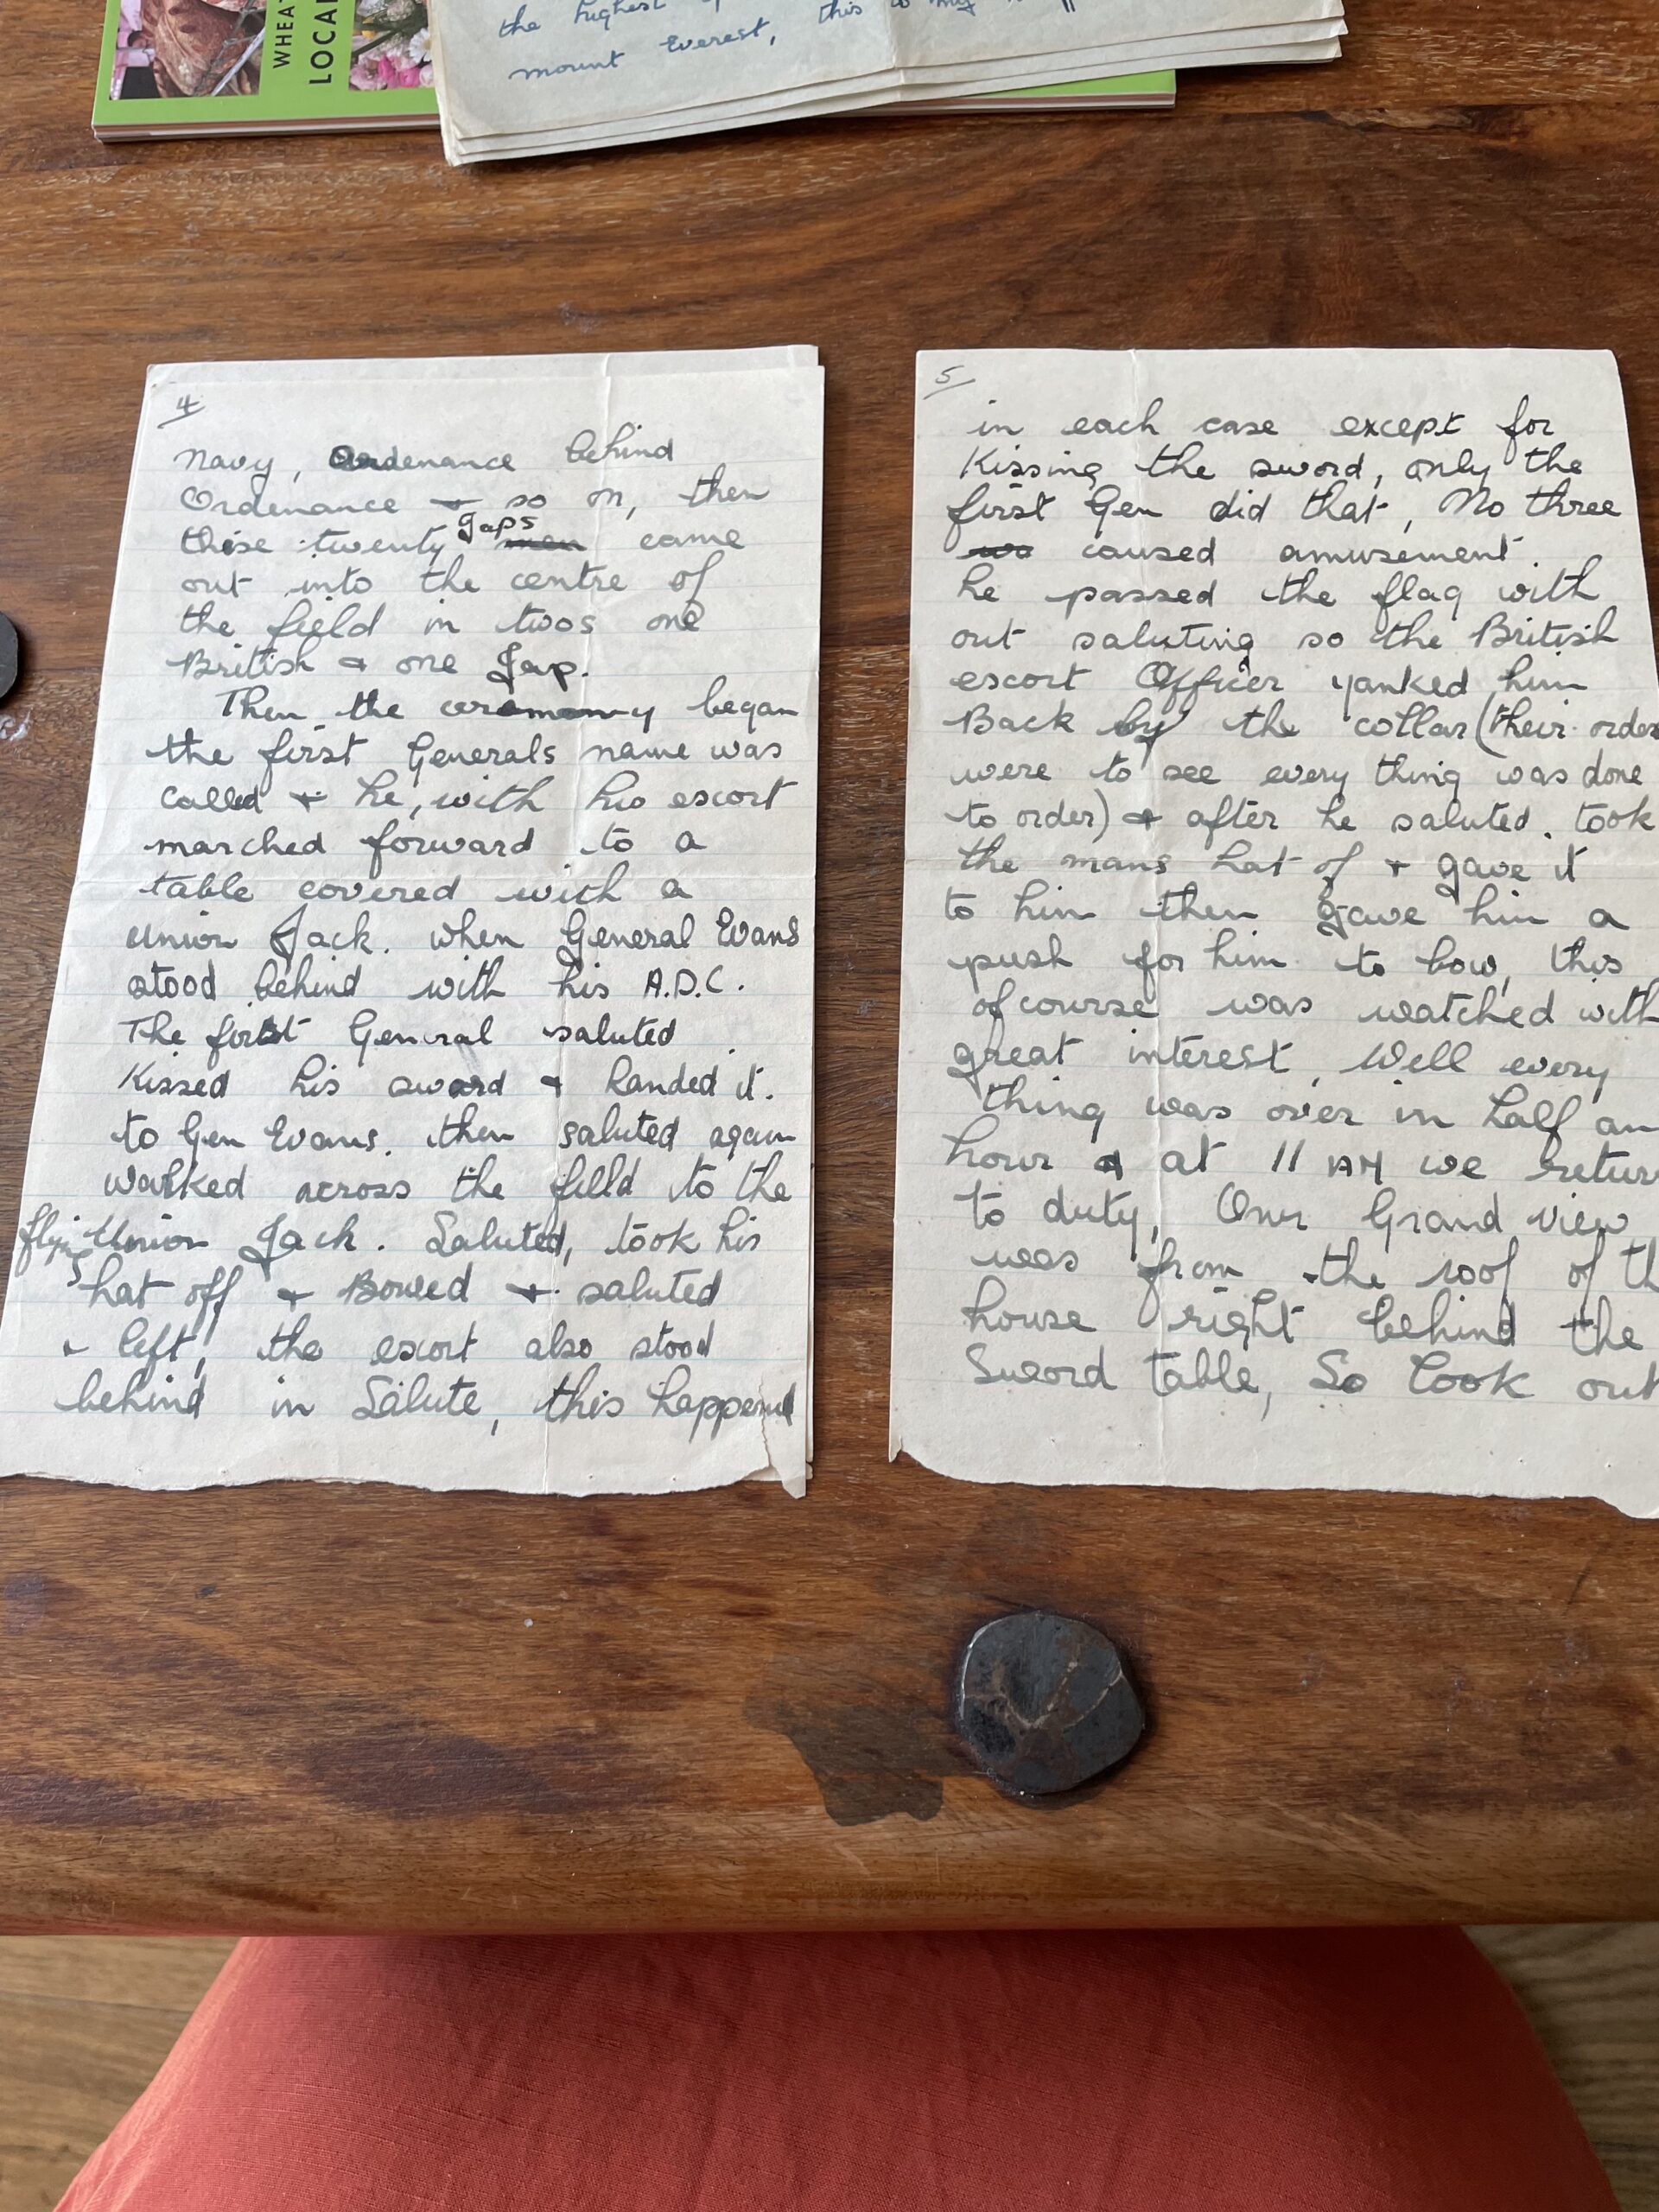 WHEAT
LOCAL
the highest
this is my
mount Everest,
4
Navy, Ordenance behind
Ordenance + so on, then
these twenty Japs men came
out into the centre of
the field in twos one
British & one Jap.
Then the ceremony began
the first Generals name was
called + he, with his escort
marched forward to a
table covered with a
Union Jack. when General Evans
stood behind with his A.D.C.
The first General saluted
Kissed his sword & handed it.
to Gen Evans. then saluted again
walked across the field to the
flying Union Jack. Saluted, took his
hat off & Bowed + saluted
& left, the escort also stood
behind in Salute, this happened
5
in each case except for
Kissing the sword, only the
first Gen did that, No three
was caused amusement
he passed the flag with
out saluting so the British
escort Officer yanked him
Back by the collar (their orders
were to see every thing was done
to order) & after he saluted. took
the mans hat of + gave it
to him then gave him a
push for him to bow, this
of course was watched with
great interest, Well every
thing was over in half an
hour & at 11 AM we return
to duty, Our Grand view
was from the roof of th
house right behind the
Sword table, So look out